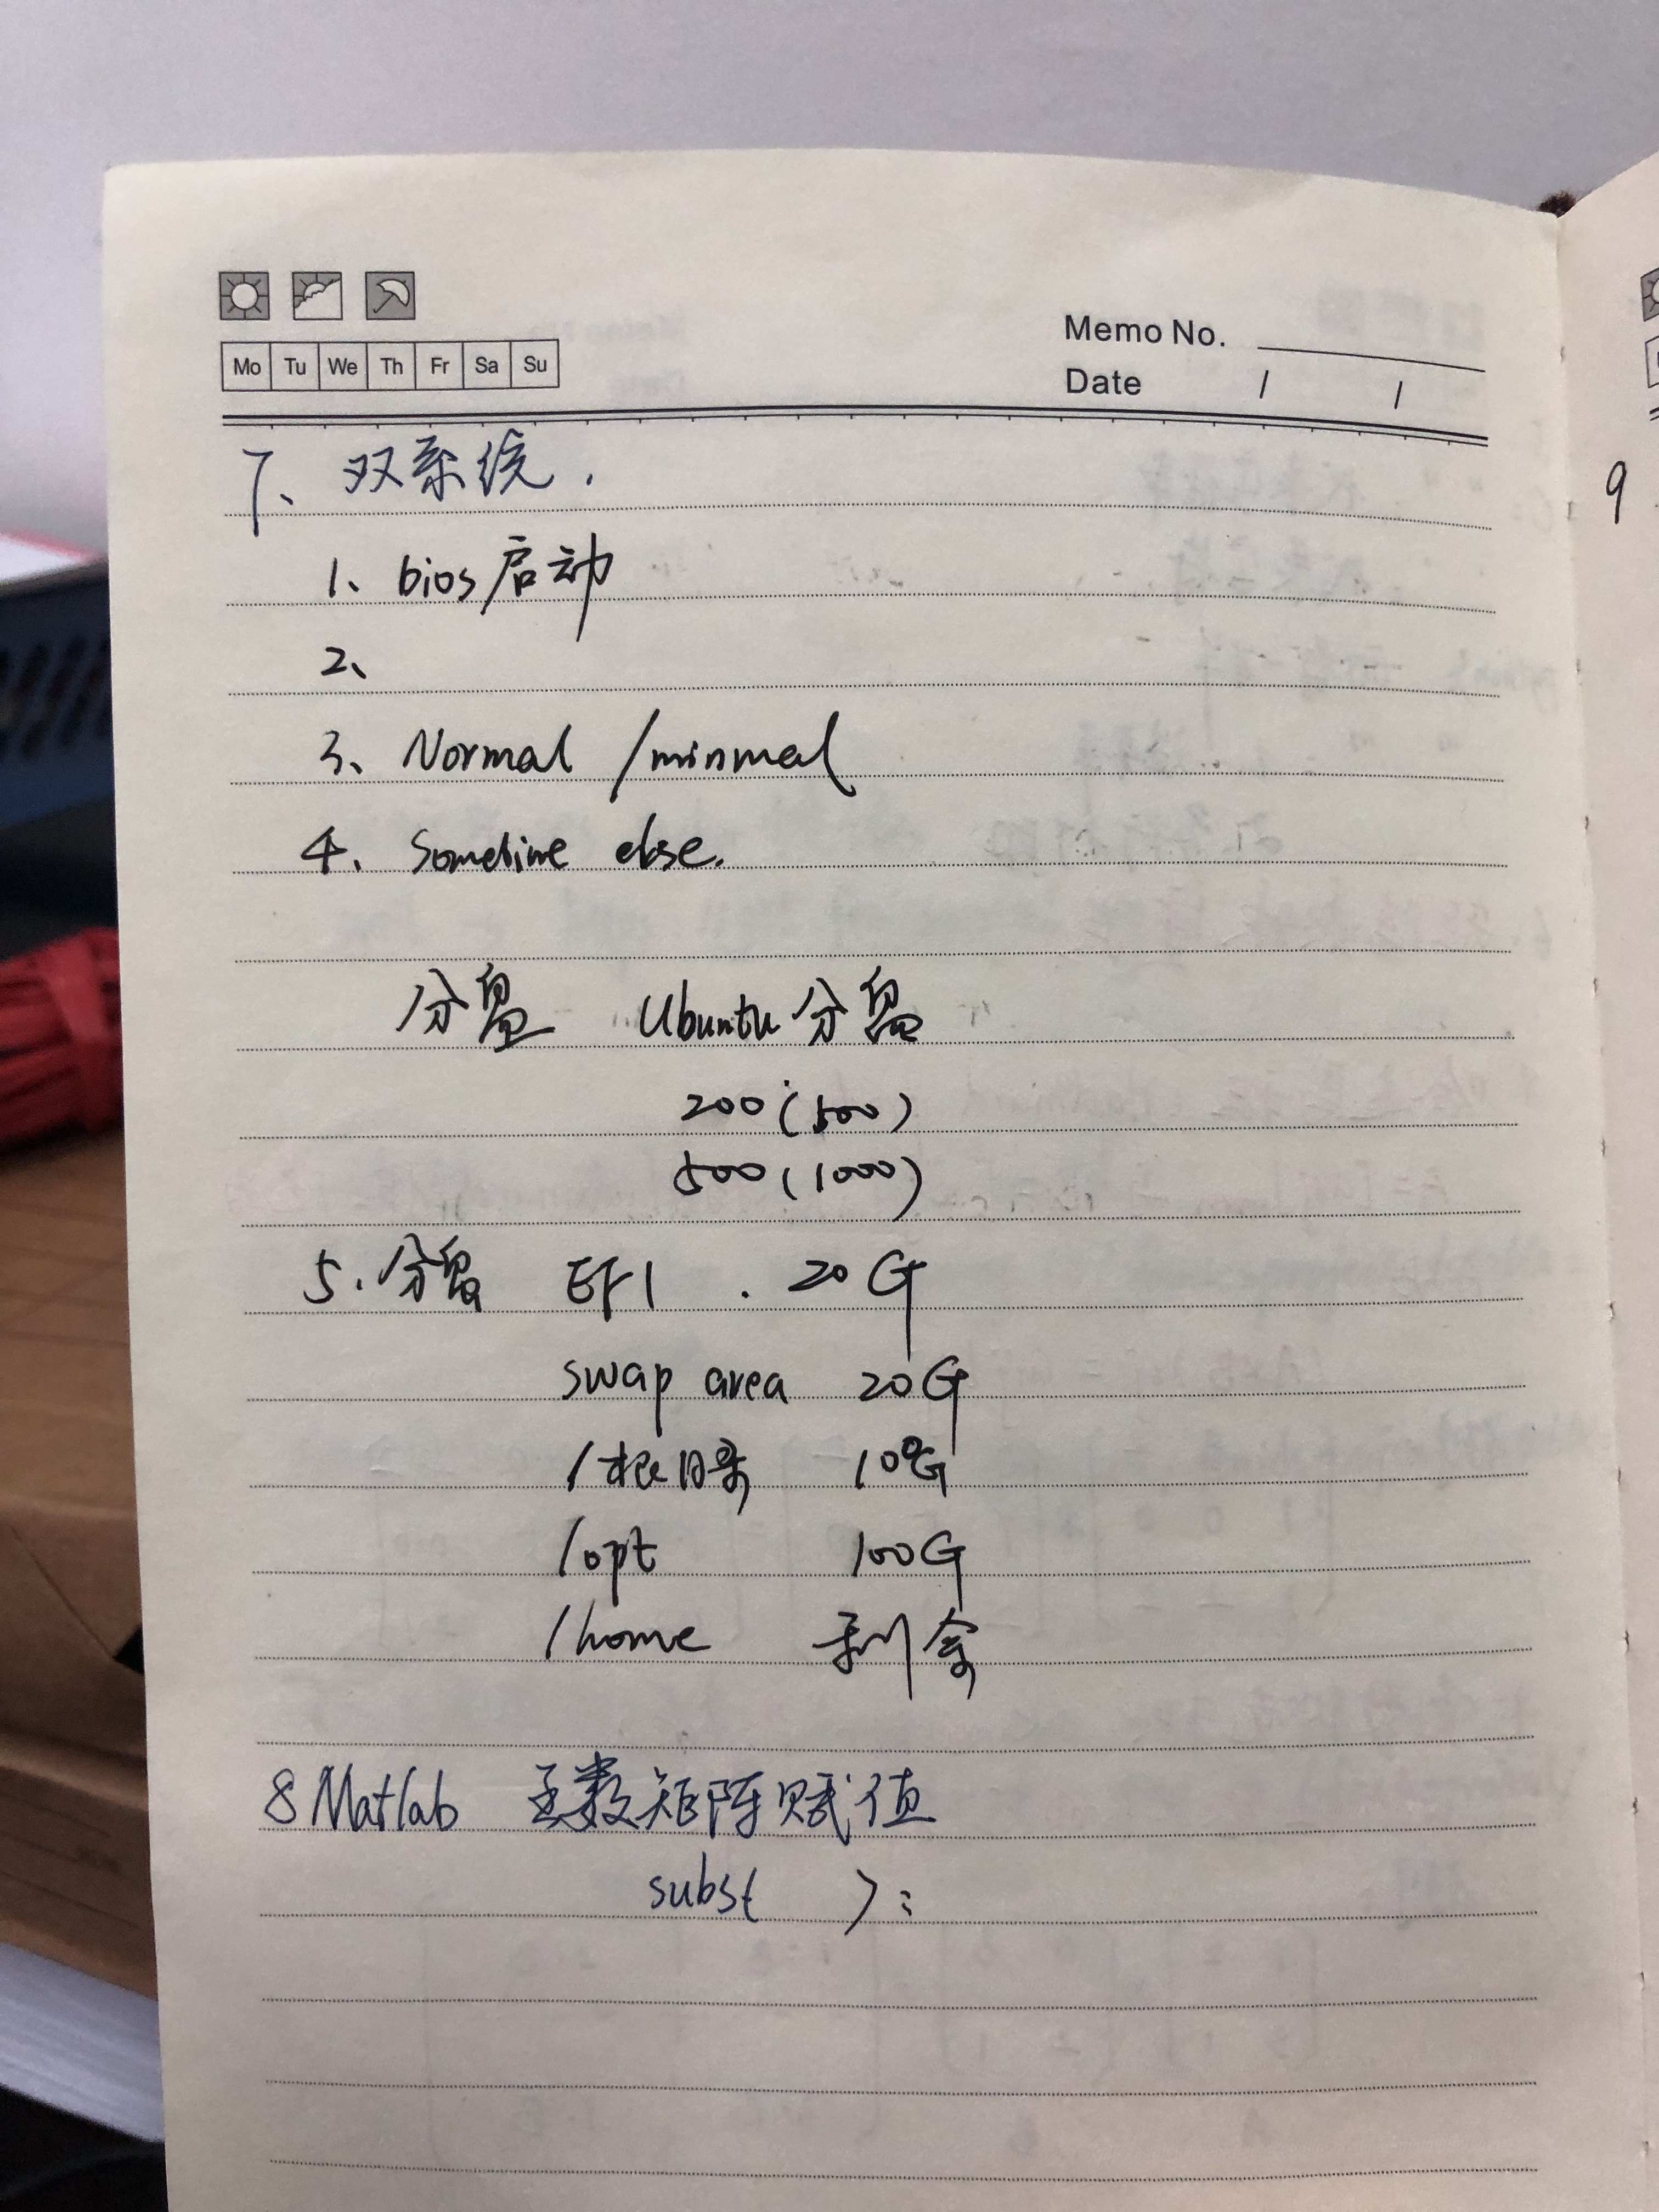 Mo Tu We Th Fr Sa Su
Memo No.
Date / /
7、双系统.
1、bios启动
2、
3、Normal /minmal
4. Sometime else.
分盘 Ubuntu分盘
200(500)
500(1000)
5.分盘 EFI . 20G
swap area 20G
/根目录
/opt 100G
/home 剩余
8 Matlab 函数矩阵赋值
subs( );
9